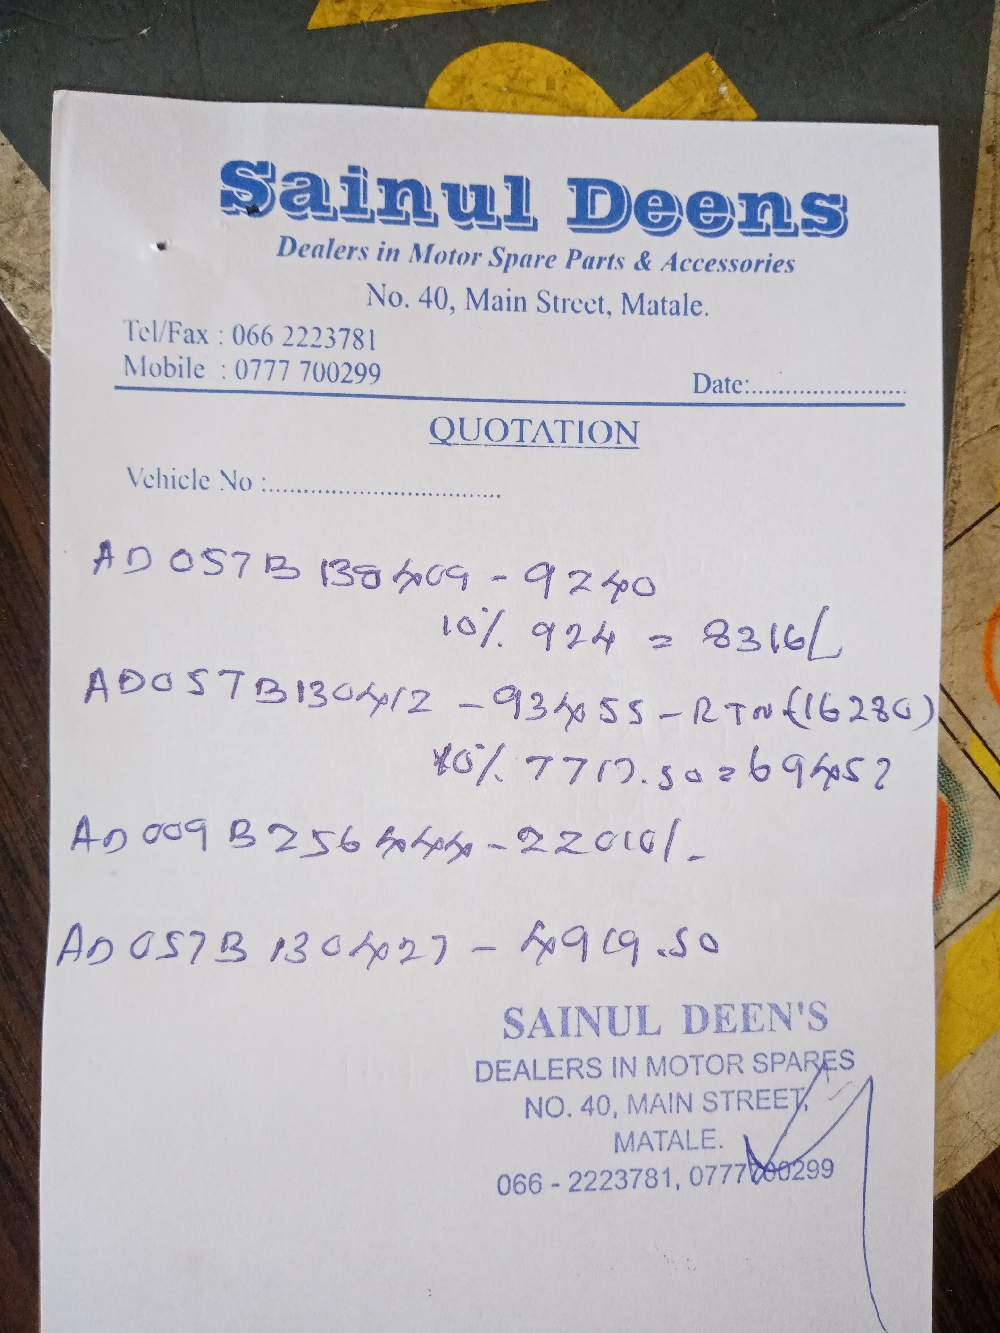 Sainul Deens
Dealers in Motor Spare Parts & Accessories
No. 40, Main Street, Matale.
Tel/Fax : 066 2223781
Mobile : 0777 700299
Date:......................
QUOTATION
Vehicle No :.................................
AD 057B 138409 - 9240
10% 924 = 8316/-
AD057B130412 - 93455 - RTN (16280)
10% 7717.50 = 69457
AD 009B256444 - 22010/-
AD 057B 130427 - 4919.50
SAINUL DEEN'S
DEALERS IN MOTOR SPARES
NO. 40, MAIN STREET,
MATALE.
066 - 2223781, 0777700299